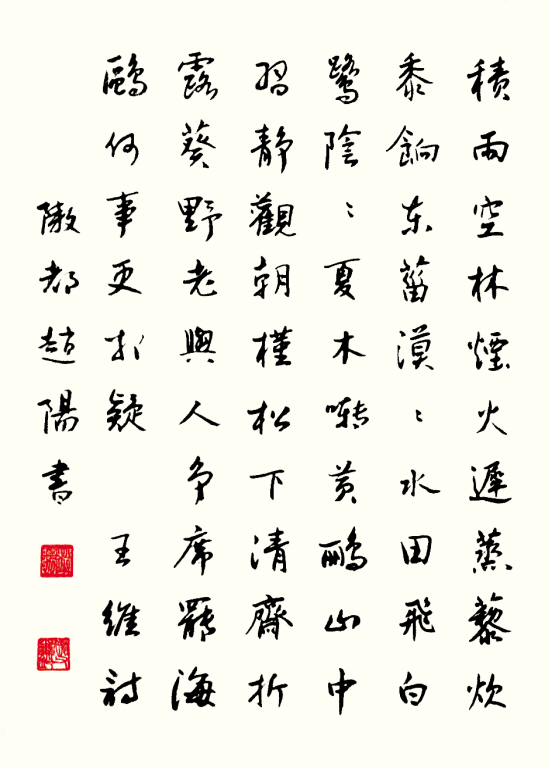 積雨空林煙火遲蒸藜炊
黍餉东菑漠〻水田飛白
鷺陰〻夏木囀黄鸝山中
習静觀朝槿松下清齋折
露葵野老與人争席罷海
鷗何事更相疑 王維詩
隞都趙陽書